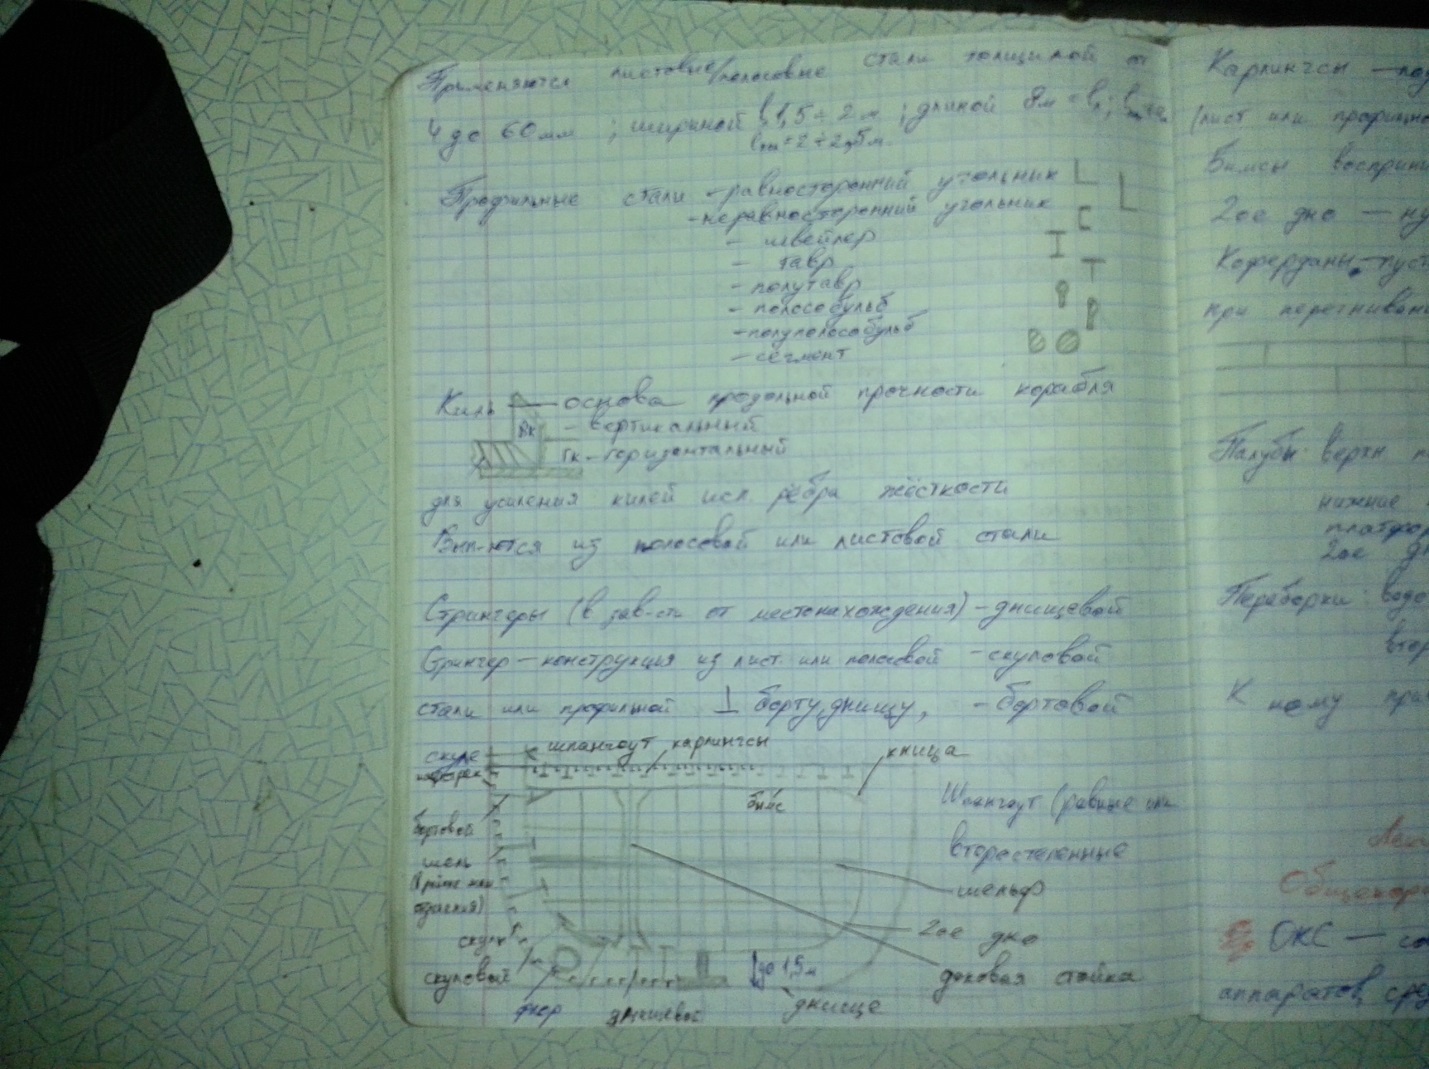 Применяются листовые/полосовые стали толщиной от
4 до 60 мм ; шириной 1,5÷2 м ; длиной 8м
2÷2,5м
Профильные стали - равносторонний угольник
- неравносторонний угольник
- швейлер
- тавр
- полутавр
- полособульб
- полуполособульб
- сегмент
Киль — основа продольной прочности корабля
ВК - вертикальный
ГК - горизонтальный
для усиления килей исп. рёбра жёсткости
Вып-ются из полосовой или листовой стали
Стрингеры (в зав-сти от местонахождения) - днищевой
Стрингер — конструкция из лист. или полосовой - скуловой
стали или профильной ⊥ борту, днищу, - бортовой
шпангоут карлингсы
кница
бимс
Шпангоут (равные или
бортовой
второстепенные
шельф
скуловой
2ое дно
доковая стойка
до 1,5 м
днище
флор
днищевой
Карлингсы —
(лист или профильно
Бимсы восприни
2ое дно —
Кофердамы — пуст
при перегнивани
Палубы: верхн
нижние
платфор
2ое дн
Переборки: водо
втор
К нему при
Общекора
ОКС — со
аппаратов, сред